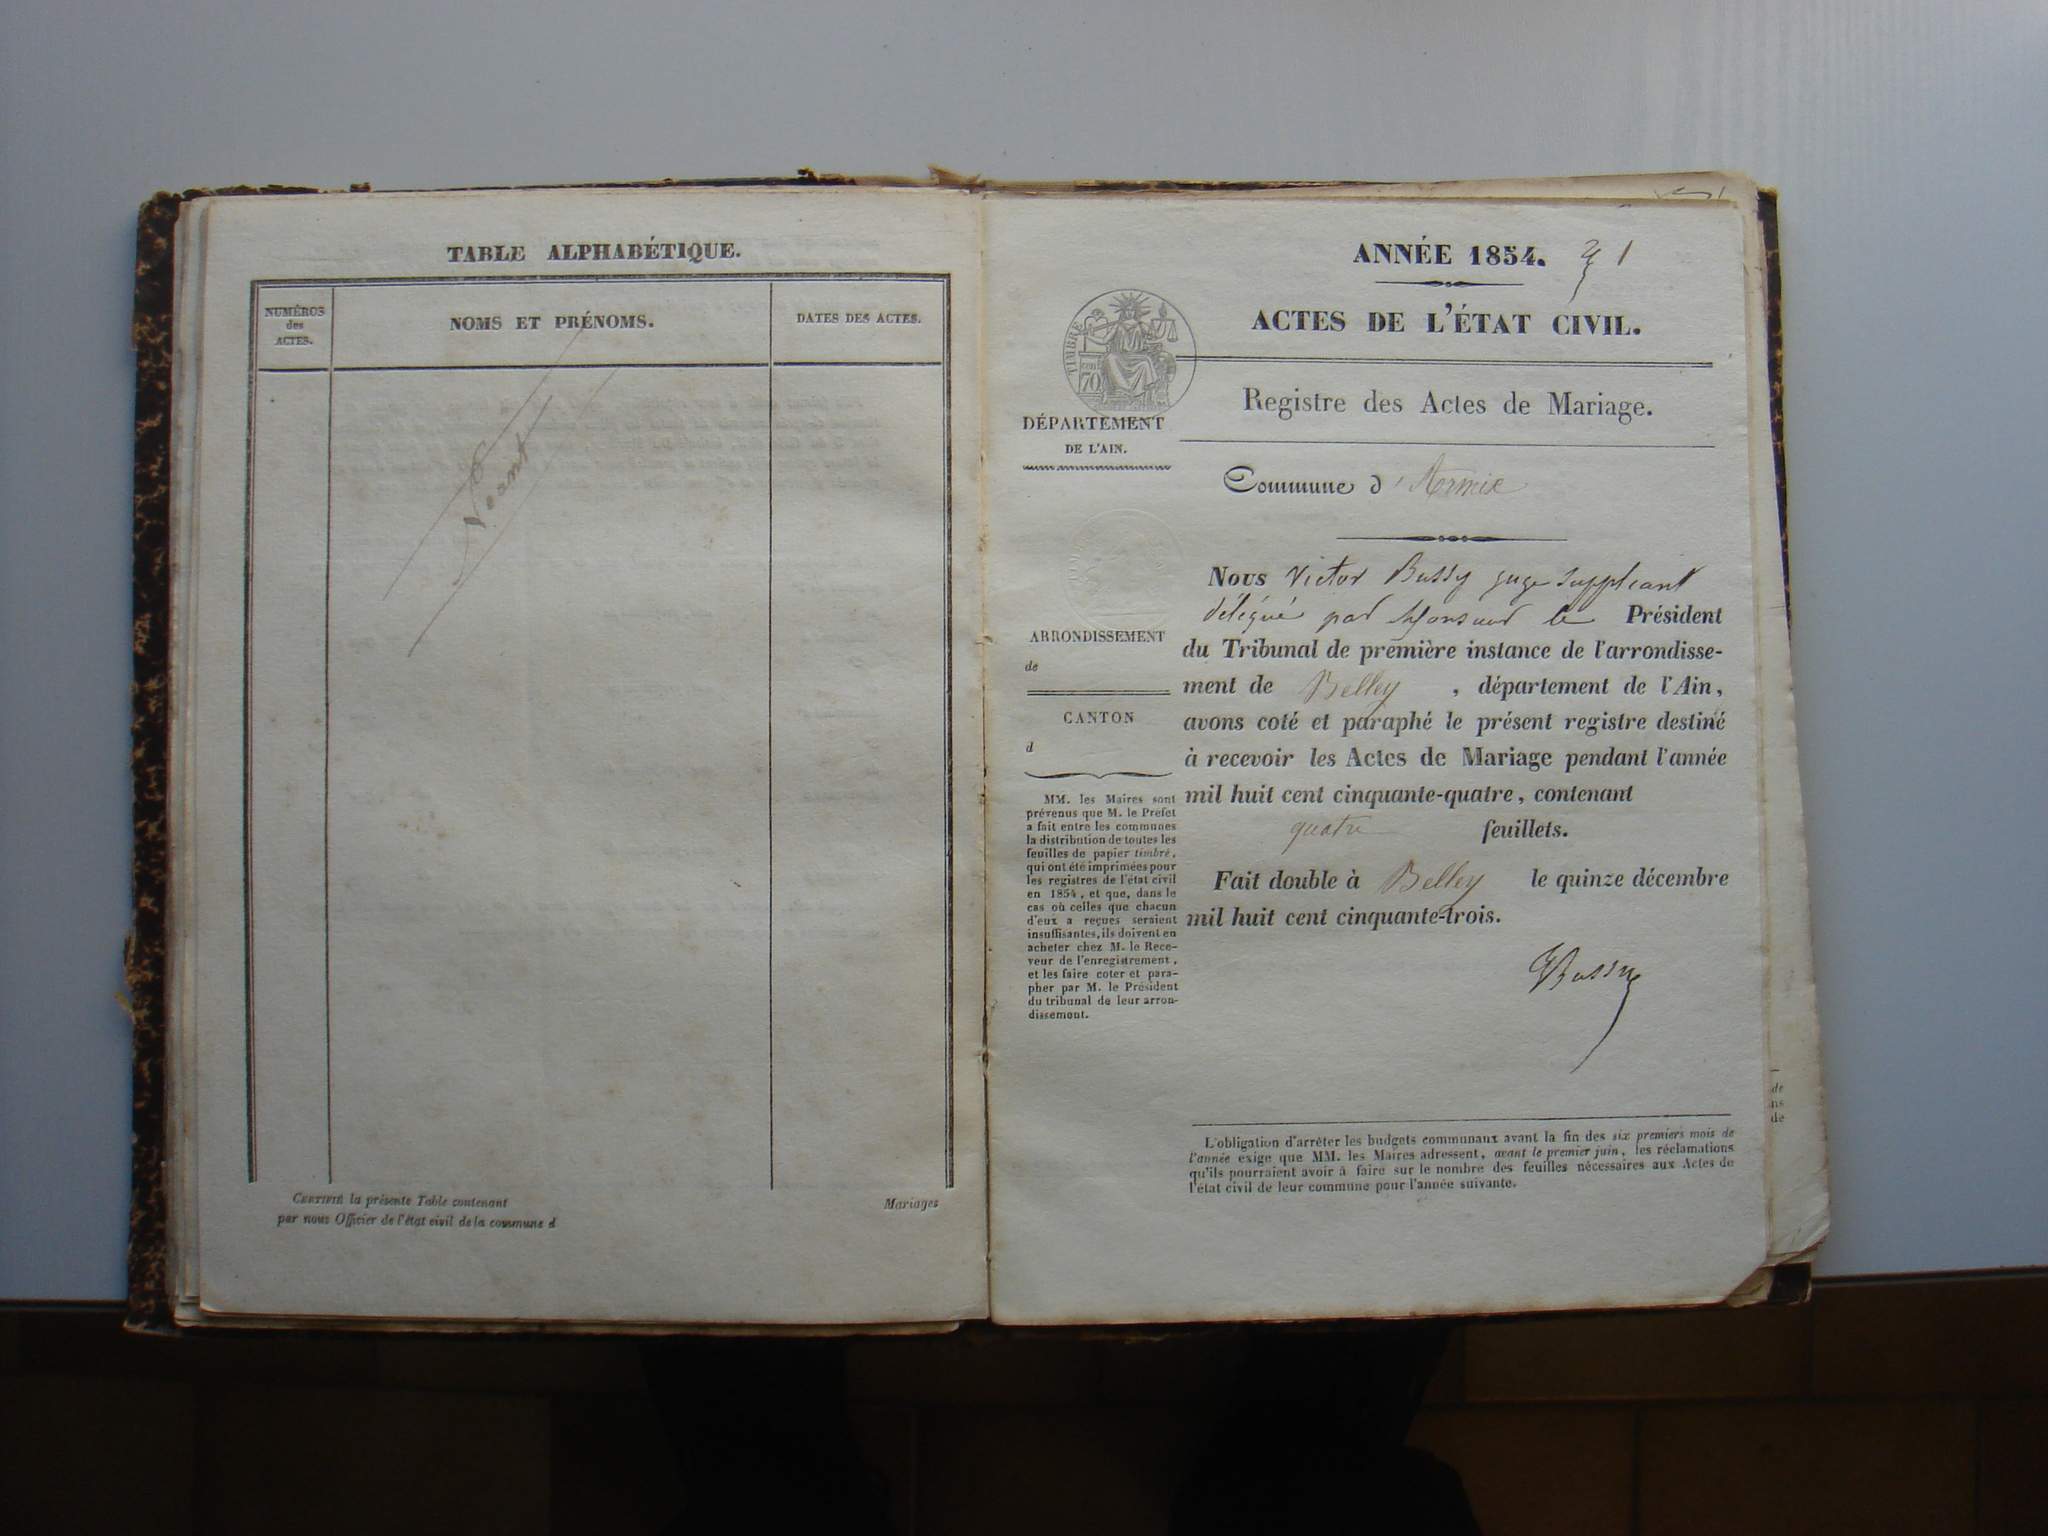 TABLE ALPHABÉTIQUE.
NUMÉROS
des
ACTES.
NOMS ET PRÉNOMS.
DATES DES ACTES.
Néant
CERTIFIÉ la présente Table contenant
par nous Officier de l'état civil de la commune d
Mariages
ANNÉE 1854. 1
ACTES DE L'ÉTAT CIVIL.
TIMBRE
70
Registre des Actes de Mariage.
DÉPARTEMENT
DE L'AIN.
Commune d'Armix
ARRONDISSEMENT
de
CANTON
d
MM. les Maires sont
prévenus que M. le Préfet
a fait entre les communes
la distribution de toutes les
feuilles de papier timbré,
qui ont été imprimées pour
les registres de l'état civil
en 1854, et que, dans le
cas où celles que chacun
d'eux a reçues seraient
insuffisantes, ils doivent en
acheter chez M. le Rece-
veur de l'enregistrement,
et les faire coter et para-
pher par M. le Président
du tribunal de leur arron-
dissement.
Nous Victor Bussy juge suppléant
délégué par Monsieur le Président
du Tribunal de première instance de l'arrondisse-
ment de Belley, département de l'Ain,
avons coté et paraphé le présent registre destiné
à recevoir les Actes de Mariage pendant l'année
mil huit cent cinquante-quatre, contenant
quatre feuillets.
Fait double à Belley le quinze décembre
mil huit cent cinquante-trois.
VBussy
L'obligation d'arrêter les budgets communaux avant la fin des six premiers mois de
l'année exige que MM. les Maires adressent, avant le premier juin, les réclamations
qu'ils pourraient avoir à faire sur le nombre des feuilles nécessaires aux Actes de
l'état civil de leur commune pour l'année suivante.
de
ns
de